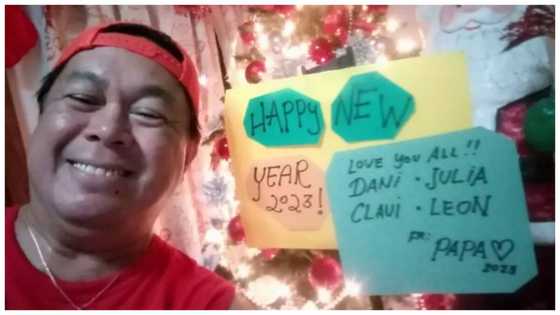 HAPPY NEW
YEAR
2023!
LOVE YOU ALL!!
DANI · JULIA
CLAUI · LEON
FR: PAPA♡
2023